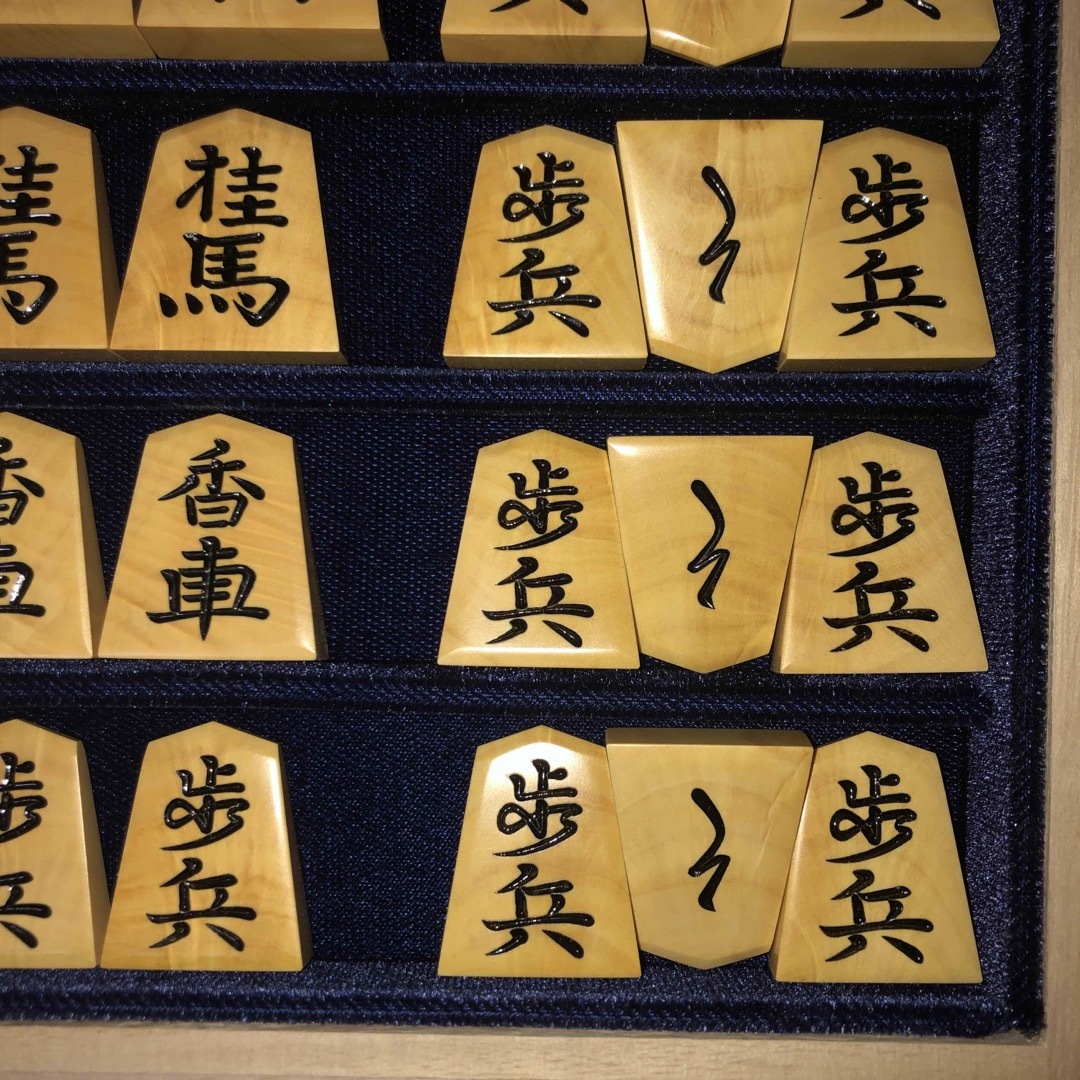 桂馬
桂馬
歩兵
と
歩兵
香車
香車
歩兵
と
歩兵
歩兵
歩兵
歩兵
と
歩兵